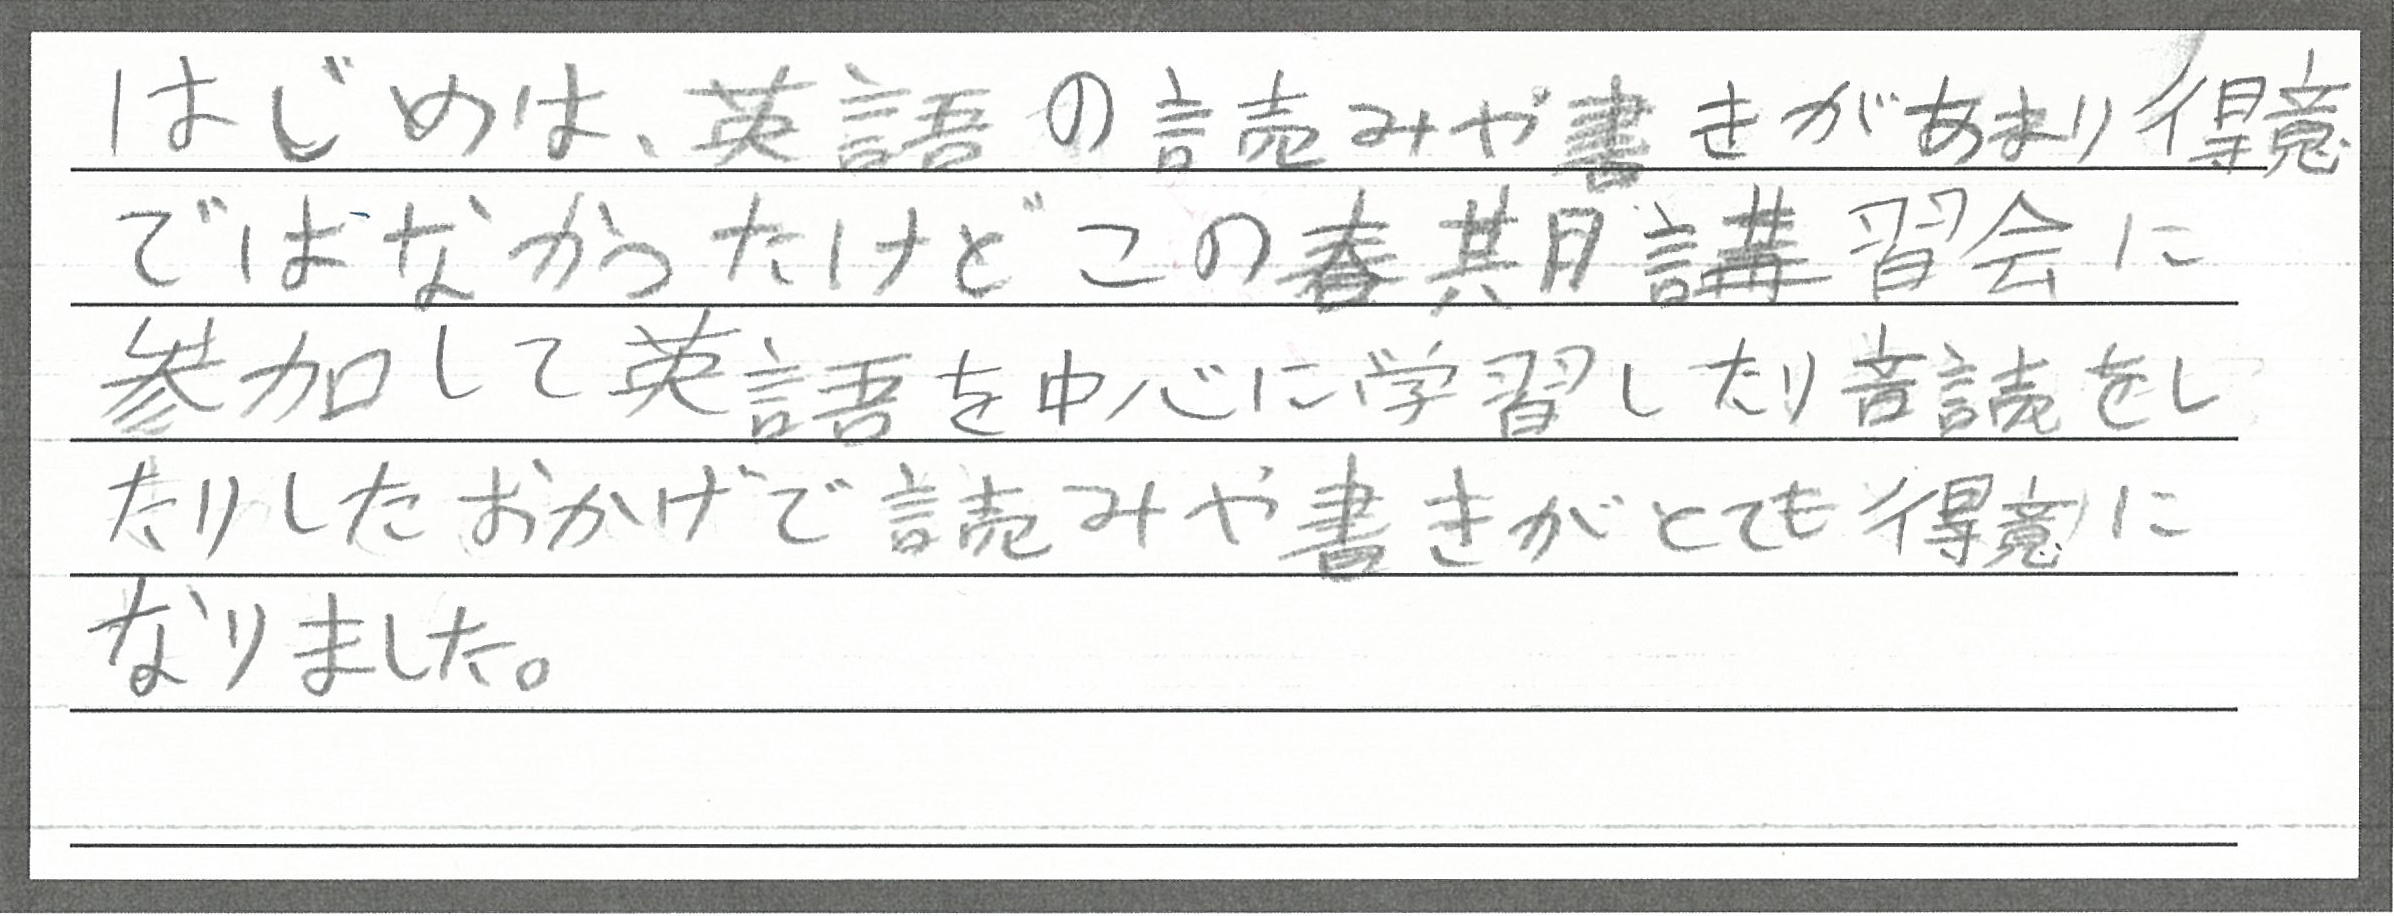 はじめは、英語の読みや書きがあまり得意
ではなかったけどこの春期講習会に
参加して英語を中心に学習したり音読をし
たりしたおかげで読みや書きがとても得意に
なりました。